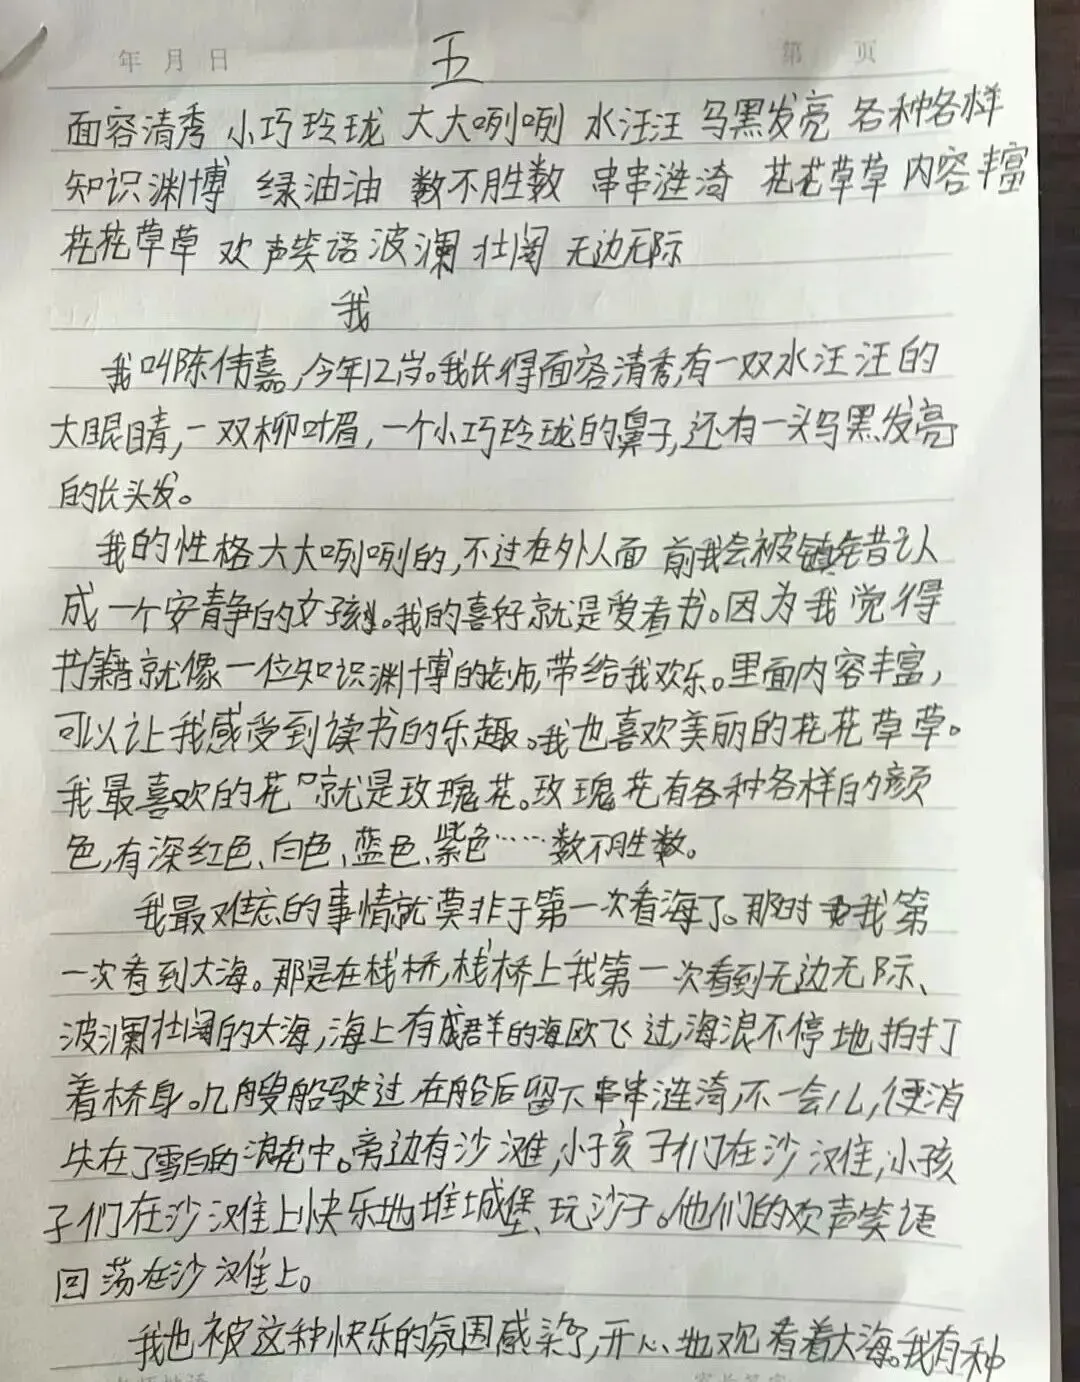 年 月 日 五 第 页
面容清秀 小巧玲珑 大大咧咧 水汪汪 乌黑发亮 各种各样
知识渊博 绿油油 数不胜数 串串涟漪 花花草草 内容丰富
花花草草 欢声笑语 波澜壮阔 无边无际
我
我叫陈伟嘉,今年12岁。我长得面容清秀,有一双水汪汪的
大眼睛,一双柳叶眉,一个小巧玲珑的鼻子,还有一头乌黑发亮
的长头发。
我的性格大大咧咧的,不过在外人面前我会被错认
成一个安静的女孩。我的喜好就是爱看书。因为我觉得
书籍就像一位知识渊博的老师,带给我欢乐。里面内容丰富,
可以让我感受到读书的乐趣。我也喜欢美丽的花花草草。
我最喜欢的花就是玫瑰花。玫瑰花有各种各样的颜
色,有深红色、白色、蓝色、紫色……数不胜数。
我最难忘的事情就莫非于第一次看海了。那时我第
一次看到大海。那是在栈桥,栈桥上我第一次看到无边无际、
波澜壮阔的大海,海上有成群的海欧飞过,海浪不停地拍打
着桥身。几艘船驶过在船后留下串串涟漪,不一会儿,便消
失在了雪白的浪花中。旁边有沙滩,小孩子们在沙滩,小孩
子们在沙滩上快乐地堆城堡、玩沙子。他们的欢声笑语
回荡在沙滩上。
我也被这种快乐的氛围感染了,开心地观看着大海。我有种